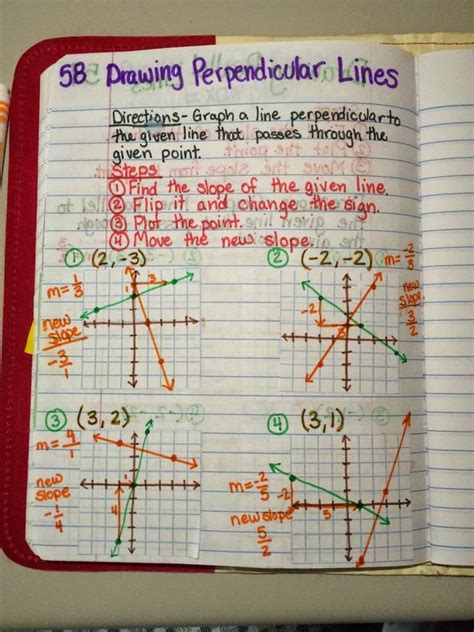 5B Drawing Perpendicular Lines
Directions- Graph a line perpendicular to
the given line that passes through the
given point.
Steps
① Find the slope of the given line.
② Flip it and change the sign.
③ Plot the point.
④ Move the new slope.
① (2, -3)
m = 1/3
new
slope
-3/1
1
3
② (-2, -2) m = -2/3
new
slope
3/2
-2
3
③ (3, 2)
m = 4/1
new
slope
-1/4
4
1
④ (3, 1)
m = -2/5
new slope
5/2
-2
5